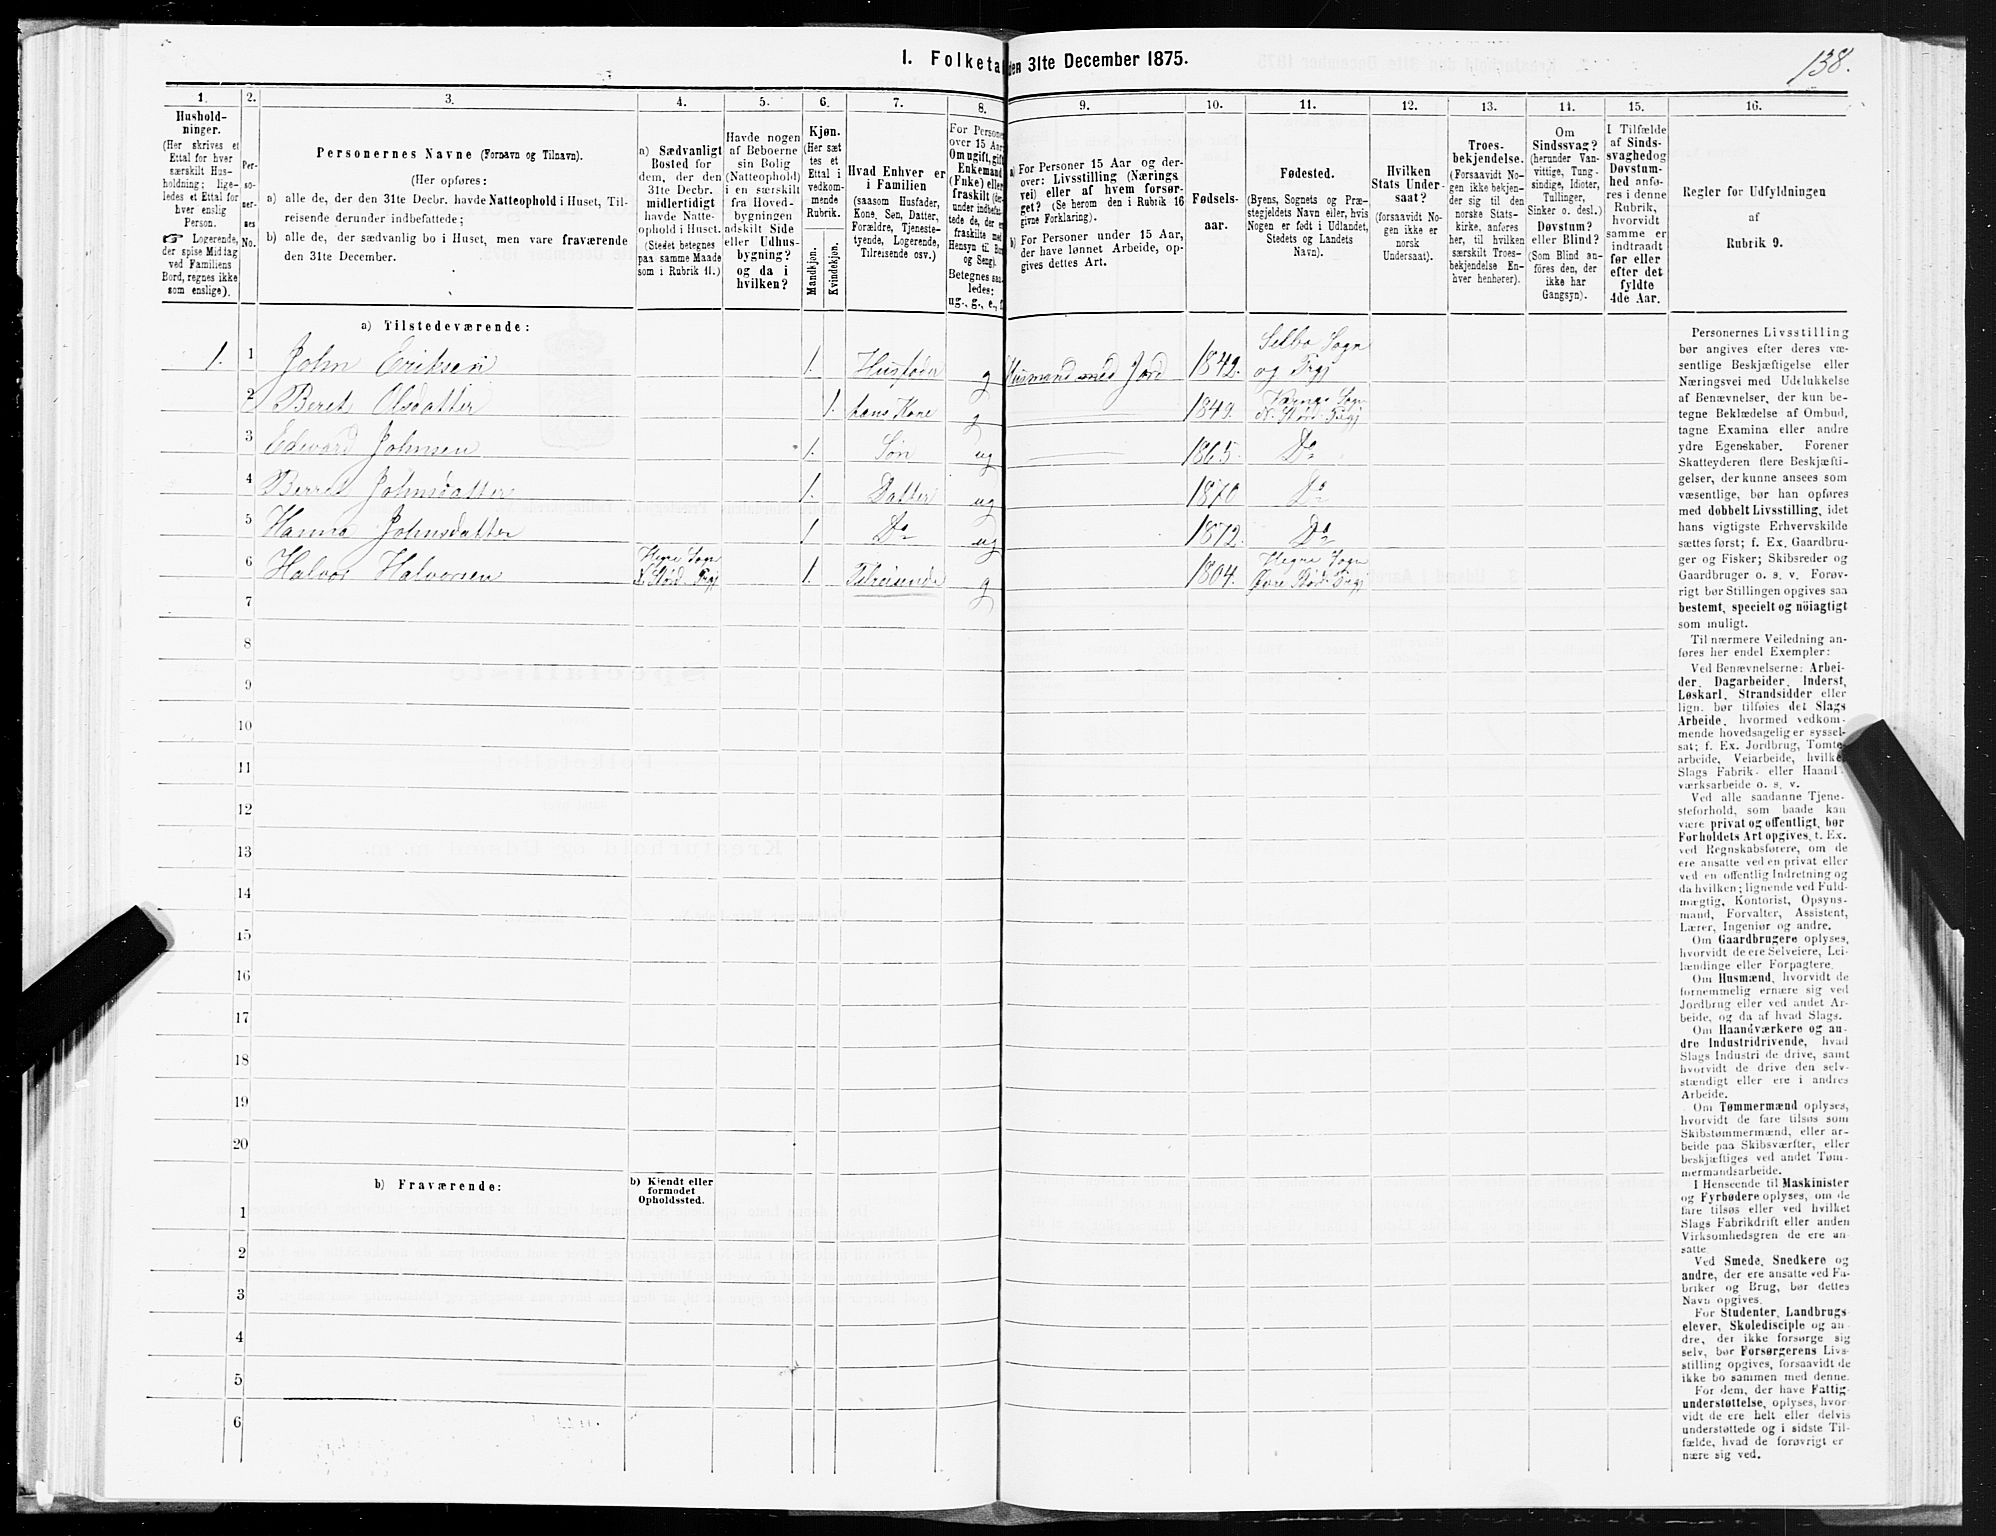 I. Folketal den 31te December 1875.
138.
1.
2.
3.
4.
5.
6.
7.
8.
9.
10.
11.
12.
13.
14.
15.
16.
Hushold-
ninger.
(Her skrives et
Ettal for hver
særskilt Hus-
holdning; lige-
ledes et Ettal for
hver enslig
Person.
☞ Logerende,
der spise Middag
ved Familiens
Bord, regnes ikke
som enslige).
Per-
so-
ner-
nes
No.
Personernes Navne (Fornavn og Tilnavn).
(Her opføres:
a) alle de, der den 31te Decbr. havde Natteophold i Huset, Til-
reisende derunder indbefattede;
b) alle de, der sædvanlig bo i Huset, men vare fraværende
den 31te December.
a) Sædvanligt
Bosted for
dem, der den
31te Decbr.
midlertidigt
havde Natte-
ophold i Huset.
(Stedet betegnes
paa samme Maade
som i Rubrik 11.)
Havde nogen
af Beboerne
sin Bolig
(Natteophold)
i en særskilt
fra Hoved-
bygningen
adskilt Side
eller Udhus-
bygning?
og da i
hvilken?
Kjøn.
(Her sæt
tes et
Ettal i
vedkom-
mende
Rubrik.
Mandkjøn.
Kvindekjøn.
Hvad Enhver er
i Familien
(saasom Husfader,
Kone, Søn, Datter,
Forældre, Tjeneste-
tyende, Logerende,
Tilreisende osv.)
For Persone
over 15 Aar
Om ugift, gift
Enkemand
(Enke) eller
fraskilt (der-
under indbefat-
tede de, der er
fraskilte med
Hensyn til Bord
og Seng).
Betegnes saa-
ledes:
ug., g., e.,
a) For Personer 15 Aar og der-
over: Livsstilling (Nærings-
vei) eller af hvem forsør-
get? (Se herom den i Rubrik 16
givne Forklaring).
b) For Personer under 15 Aar,
der have lønnet Arbeide, op-
gives dettes Art.
Fødsels-
aar.
Fødested.
(Byens, Sognets og Præ-
stegjeldets Navn eller, hvis
Nogen er født i Udlandet,
Stedets og Landets
Navn).
Hvilken
Stats Under-
saat?
(forsaavidt No-
gen ikke er
norsk
Undersaat).
Troes-
bekjendelse.
(Forsaavidt No-
gen ikke bekjen-
der sig til den
norske Stats-
kirke, anføres
her, til hvilken
særskilt Troes-
bekjendelse En-
hver henhører).
Om
Sindssvag?
(herunder Van-
vittige, Tung-
sindige, Idioter,
Tullinger,
Sinker o. desl.)
Døvstum?
eller Blind?
(Som Blind an-
føres den, der
ikke har
Gangsyn).
I Tilfælde
af Sinds-
svaghed og
Døvstum-
hed anfø-
res i denne
Rubrik,
hvorvidt
samme er
indtraadt
før eller
efter det
fyldte
4de Aar.
Regler for Udfyldningen
af
Rubrik 9.
a) Tilstedeværende:
1. 1 John Eriksen 1. Husfader g Husmand med Jord 1842. Selbo Sogn og Prgj
2 Beret Olsdatter 1. hans Kone g 1849. Sogn N. Stjørd. Prgj
3 Edward Johnsen 1. Søn ug 1865. Do
4 Berret Johnsdatter 1. Datter ug 1870 Do
5 Hanna Johnsdatter 1 Do ug 1872. Do
6 Halvor Halvorsen Hegre Sogn N. Stjørd. Prgj 1. Tilreisende g 1804. Hegre Sogn Prgj
7
8
9
10
11
12
13
14
15
16
17
18
19
20
b) Fraværende:
b) Kjendt eller
formodet
Opholdssted.
1
2
3
4
5
6
Personernes Livsstilling
bør angives efter deres væ-
sentlige Beskjæftigelse eller
Næringsvei med Udelukkelse
af Benævnelser, der kun be-
tegne Beklædelse af Ombud,
tagne Examina eller andre
ydre Egenskaber. Forener
Skatteyderen flere Beskjæfti-
gelser, der kunne ansees som
væsentlige, bør han opføres
med dobbelt Livsstilling, idet
hans vigtigste Erhvervskilde
sættes først; f. Ex. Gaardbru-
ger og Fisker; Skibsreder og
Gaardbruger o. s. v. Forøv-
rigt bør Stillingen opgives saa
bestemt, specielt og nöiagtigt
som muligt.
Til nærmere Veiledning an-
føres her endel Exempler:
Ved Benævnelserne: Arbei-
der, Dagarbeider, Inderst,
Løskarl, Strandsidder eller
lign. bør tilføies det Slags
Arbeide, hvormed vedkom-
mende hovedsagelig er syssel-
sat; f. Ex. Jordbrug, Tomte-
arbeide, Veiarbeide, hvilket
Slags Fabrik- eller Haand-
værksarbeide o. s. v.
Ved alle saadanne Tjene-
steforhold, som baade kan
være privat og offentligt, bør
Forholdets Art opgives, t. Ex.
ved Regnskabsførere, om de
ere ansatte ved en privat eller
ved en offentlig Indretning og
da hvilken; lignende ved Fuld-
mægtig, Kontorist, Opsyns-
mand, Forvalter, Assistent,
Lærer, Ingeniør og andre.
Om Gaardbrugere oplyses,
hvorvidt de ere Selveiere, Lei-
lændinge eller Forpagtere.
Om Husmænd, hvorvidt de
fornemmelig ernære sig ved
Jordbrug eller ved andet Ar-
beide, og da af hvad Slags.
Om Haandværkere og an-
dre Industridrivende, hvad
Slags Industri de drive, samt
hvorvidt de drive den selv-
stændigt eller ere i andres
Arbeide.
Om Tømmermænd oplyses,
hvorvidt de fare tilsøs som
Skibstømmermænd, eller ar-
beide paa Skibsværfter, eller
beskjæftiges ved andet Tøm-
mermandsarbeide.
I Henseende til Maskinister
og Fyrbødere oplyses, om de
fare tilsøs eller ved hvilket
Slags Fabrikdrift eller anden
Virksomhedsgren de ere an-
satte.
Ved Smede, Snedkere og
andre, der ere ansatte ved Fa-
briker og Brug, bør dettes
Navn opgives.
For Studenter, Landbrugs-
elever, Skoledisciple og an-
dre, der ikke forsørge sig
selv, bør Forsørgerens Livs-
stilling opgives, forsaavidt de
ikke bo sammen med denne.
For dem, der have Fattig-
understøttelse, oplyses, hvor-
vidt de ere helt eller delvis
understøttede og i sidste Til-
fælde, hvad de forøvrigt er-
nære sig ved.